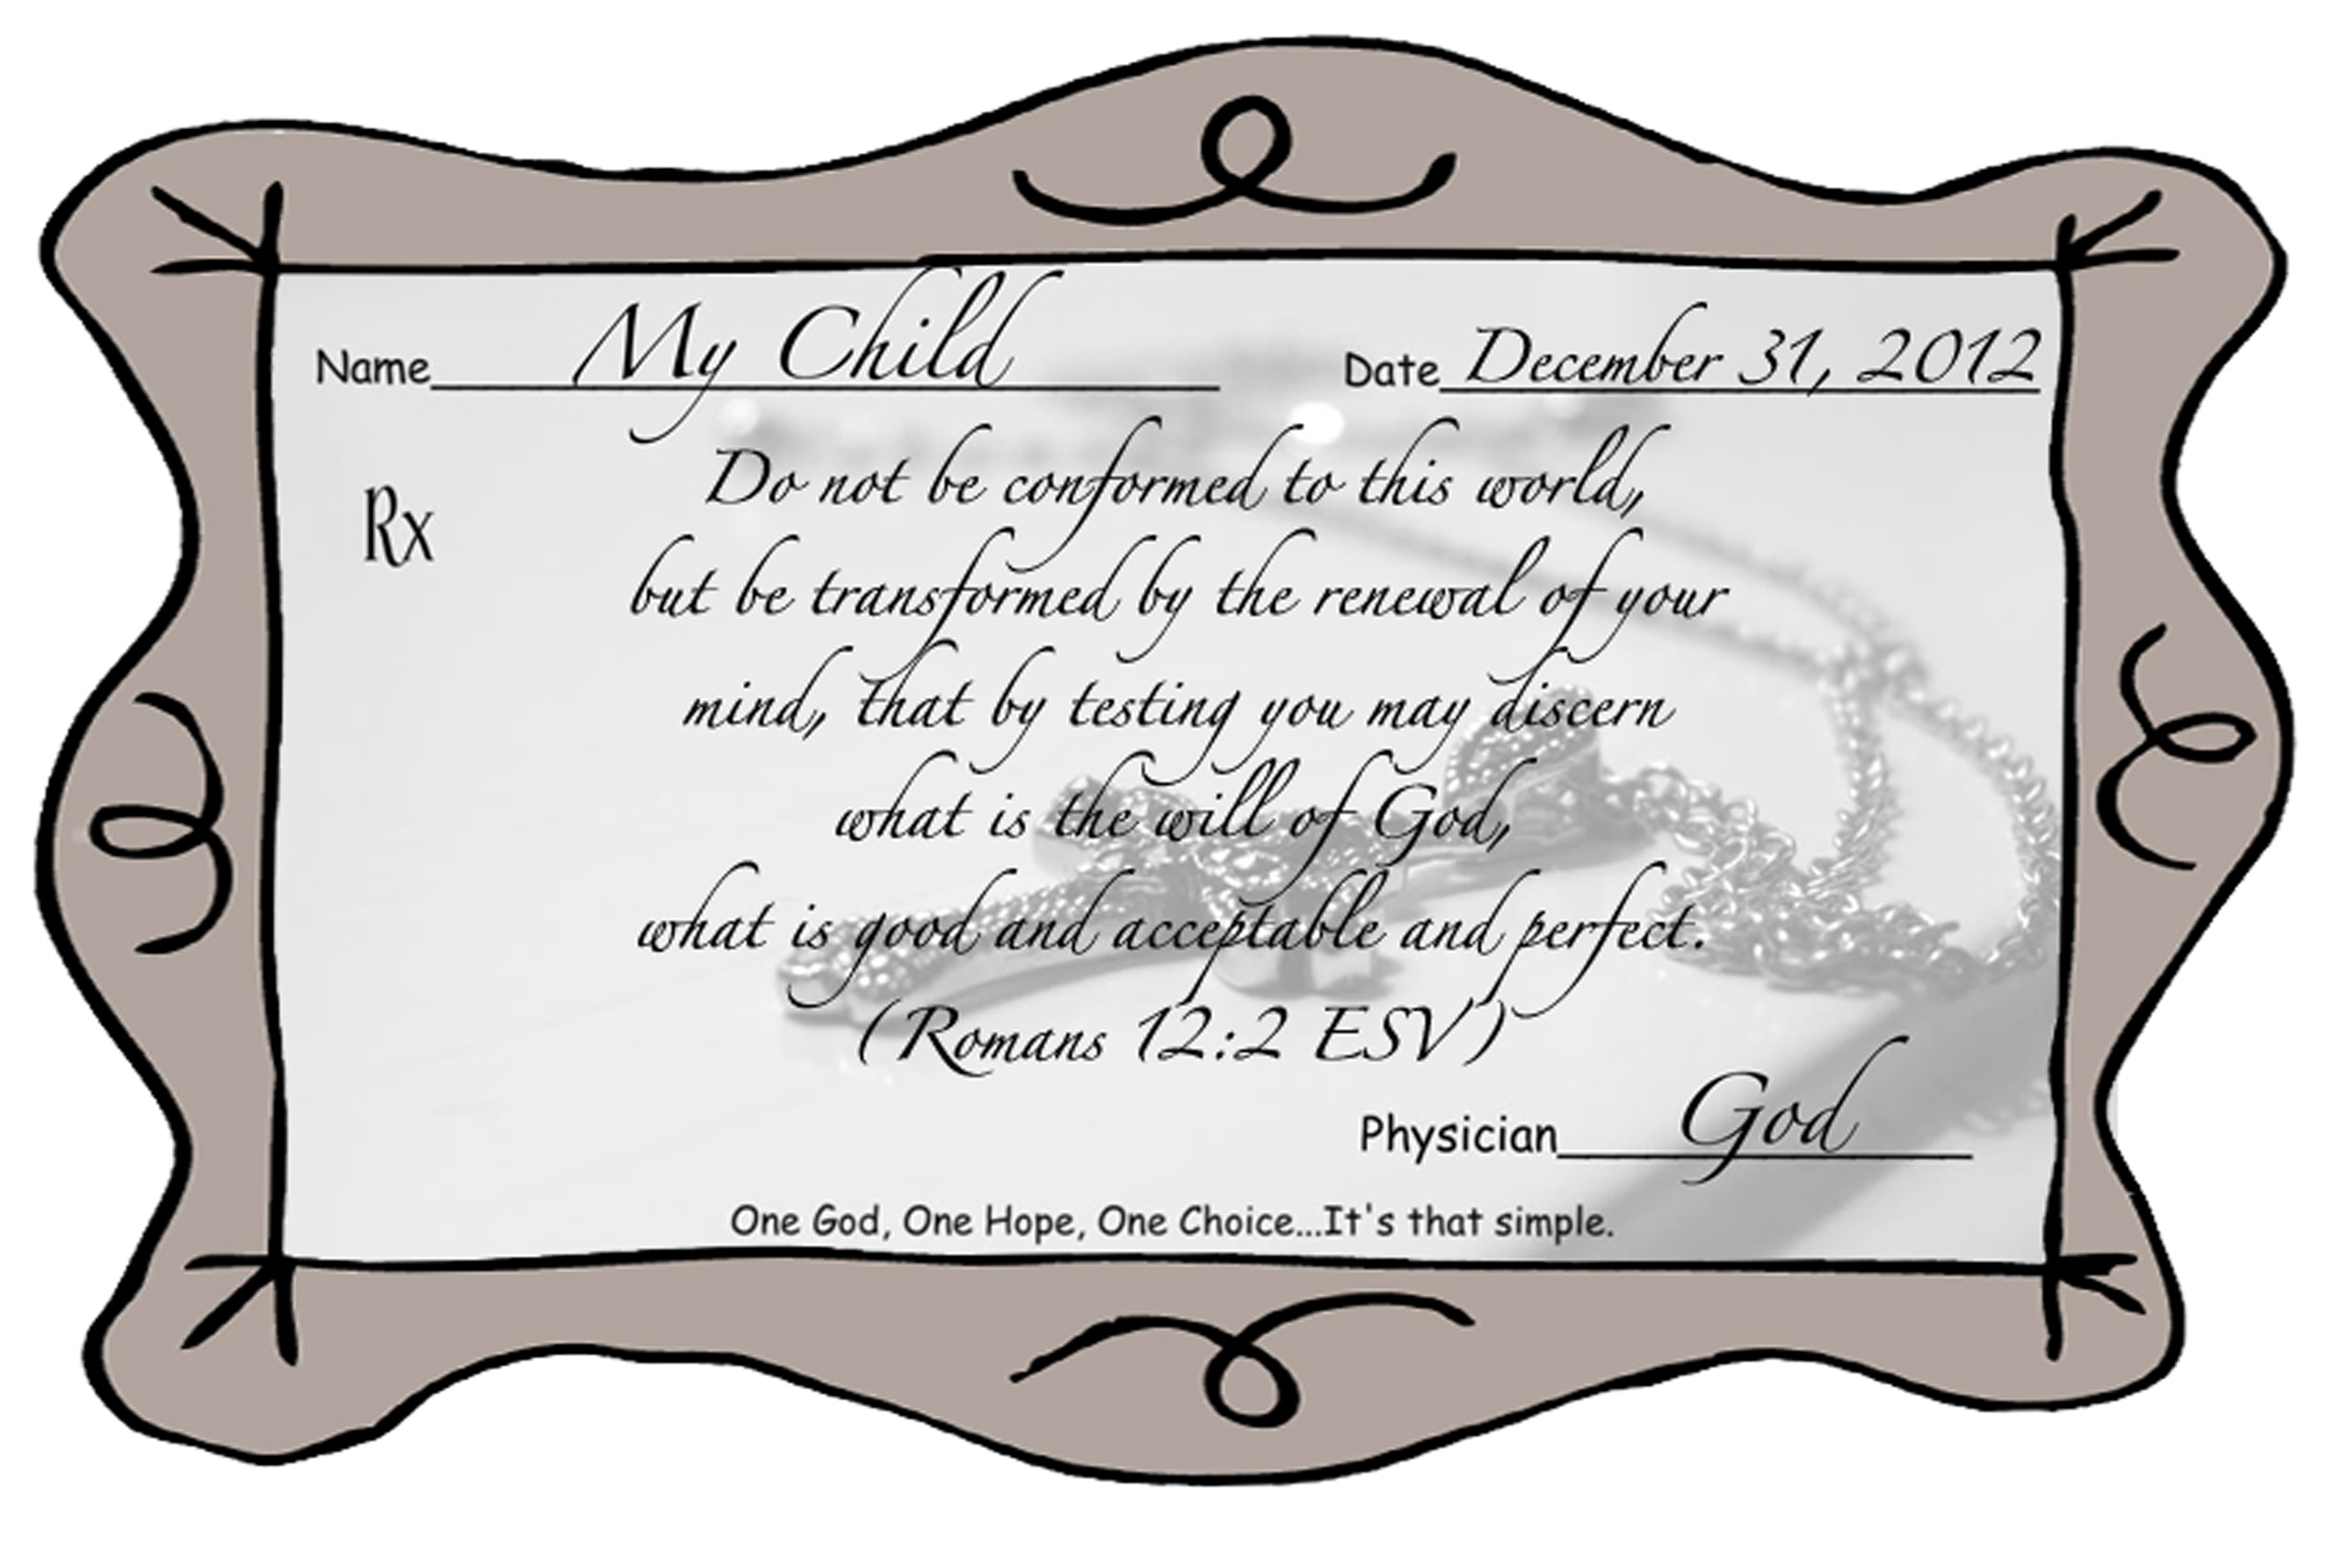 Name My Child Date December 31, 2012
Rx
Do not be conformed to this world,
but be transformed by the renewal of your
mind, that by testing you may discern
what is the will of God,
what is good and acceptable and perfect.
(Romans 12:2 ESV)
Physician God
One God, One Hope, One Choice...It's that simple.